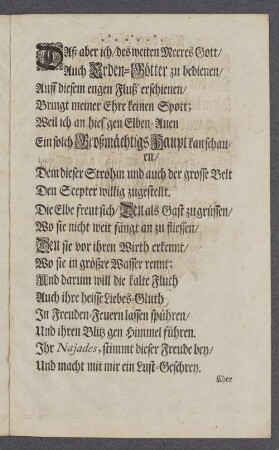 DAß aber ich/ des weiten Meeres Gott/
Auch Erden-Götter zu bedienen/
Auff diesem engen Fluß erschienen/
Bringt meiner Ehre keinen Spott;
Weil ich an hies'gen Elben-Auen
Ein solch Großmächtigs Haupt kan schau-
en/
Dem dieser Strohm und auch der grosse Belt
Den Scepter willig zugestellt.
Die Elbe freut sich/ Den als Gast zu grüssen/
Wo sie nicht weit fängt an zu fliessen/
Den sie vor ihren Wirth erkennt/
Wo sie in größre Wasser rennt;
Und darum will die kalte Fluth
Auch ihre heisse Liebes-Gluth
In Freuden-Feuern lassen spühren/
Und ihren Blitz gen Himmel führen.
Ihr Najades, stimmt dieser Freude bey/
Und macht mit mir ein Lust-Geschrey.
Chor